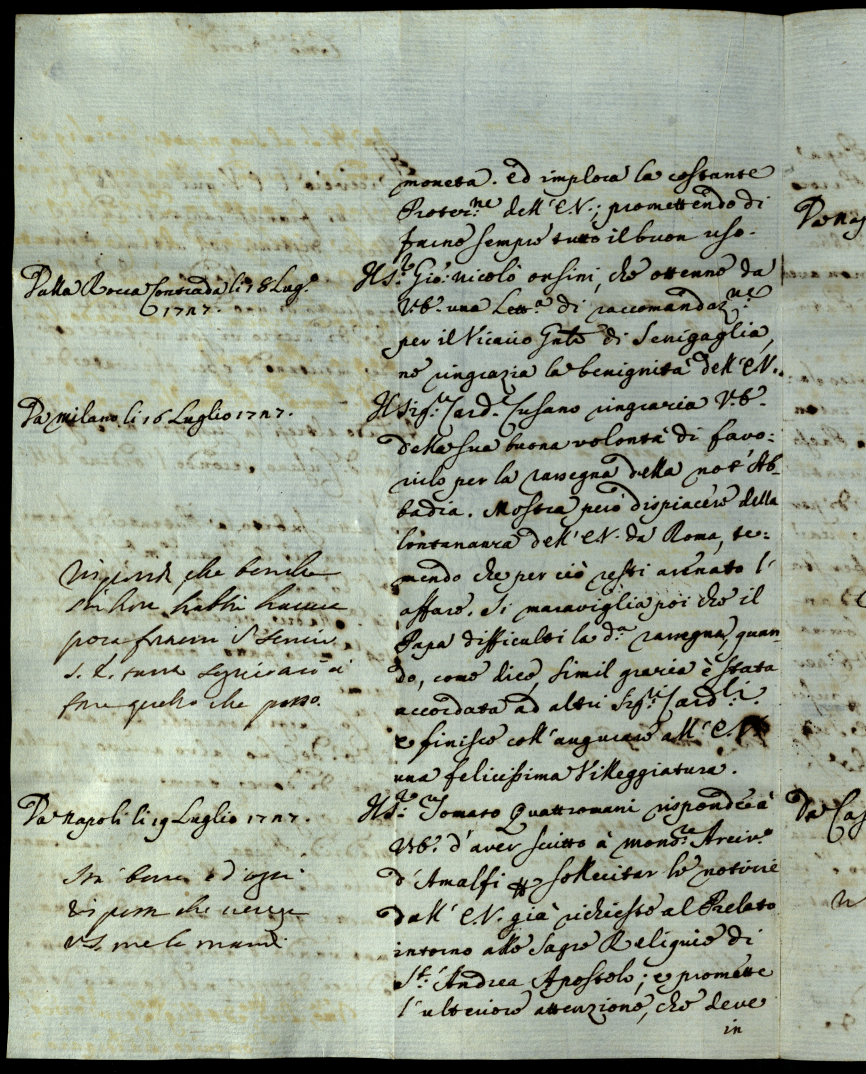 moneta. ed implora la costante
Protez.ne dell' E.V.; promettendo di
farne sempre tutto il buon uso.
Dalla Rocca Contrada li 18 Lug.o
1727.
Il S.re Gio: Nicolò Orsini, che ottenne da
V.E. una Lett.a di raccomandaz.ne
per il Vicario Gnle di Senigaglia,
ne ringrazia la benignità dell' E.V.
Da Milano li 16 Luglio 1727.
Il Sig.r Card. Cusano ringrazia V.E.
della sua buona volontà di favo:
rirlo per la rassegna della nota Ab-
badia. Mostra però dispiacere della
lontananza dell' E.V. da Roma, te:
mendo che per ciò resti arenato l'
affare. Si maraviglia poi che il
Papa difficulti la d.a rassegna, quan-
do, come dice, simil grazia è stata
accordata ad altri Sig.ri Card.li.
e finisce coll' augurare all' E.V.
una felicissima Villeggiatura.
risponda che benche
fare quello che posso.
Da Napoli li 19 Luglio 1727.
Il S.re Tomaso Quattromani risponde à
V.E. d'aver scritto à Mons.re Arciv.o
d'Amalfi p sollecitar le notizie
dall' E.V. già richieste al Prelato
intorno alle Sagre Reliquie di
S.t Andrea Apostolo; e promette
l'ulteriore attenzione, che deve
in
Stà bene e d'ogni
risposta che venga
V.S. me la mandi
Da Nap
Da Cas